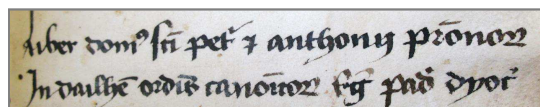 Liber domꝰ sc̄i petꝵ ⁊ anthonij pr̄onoꝝ
In dailhē ordīs canoīcoꝝ rēḡ pad̄ dyoc̄